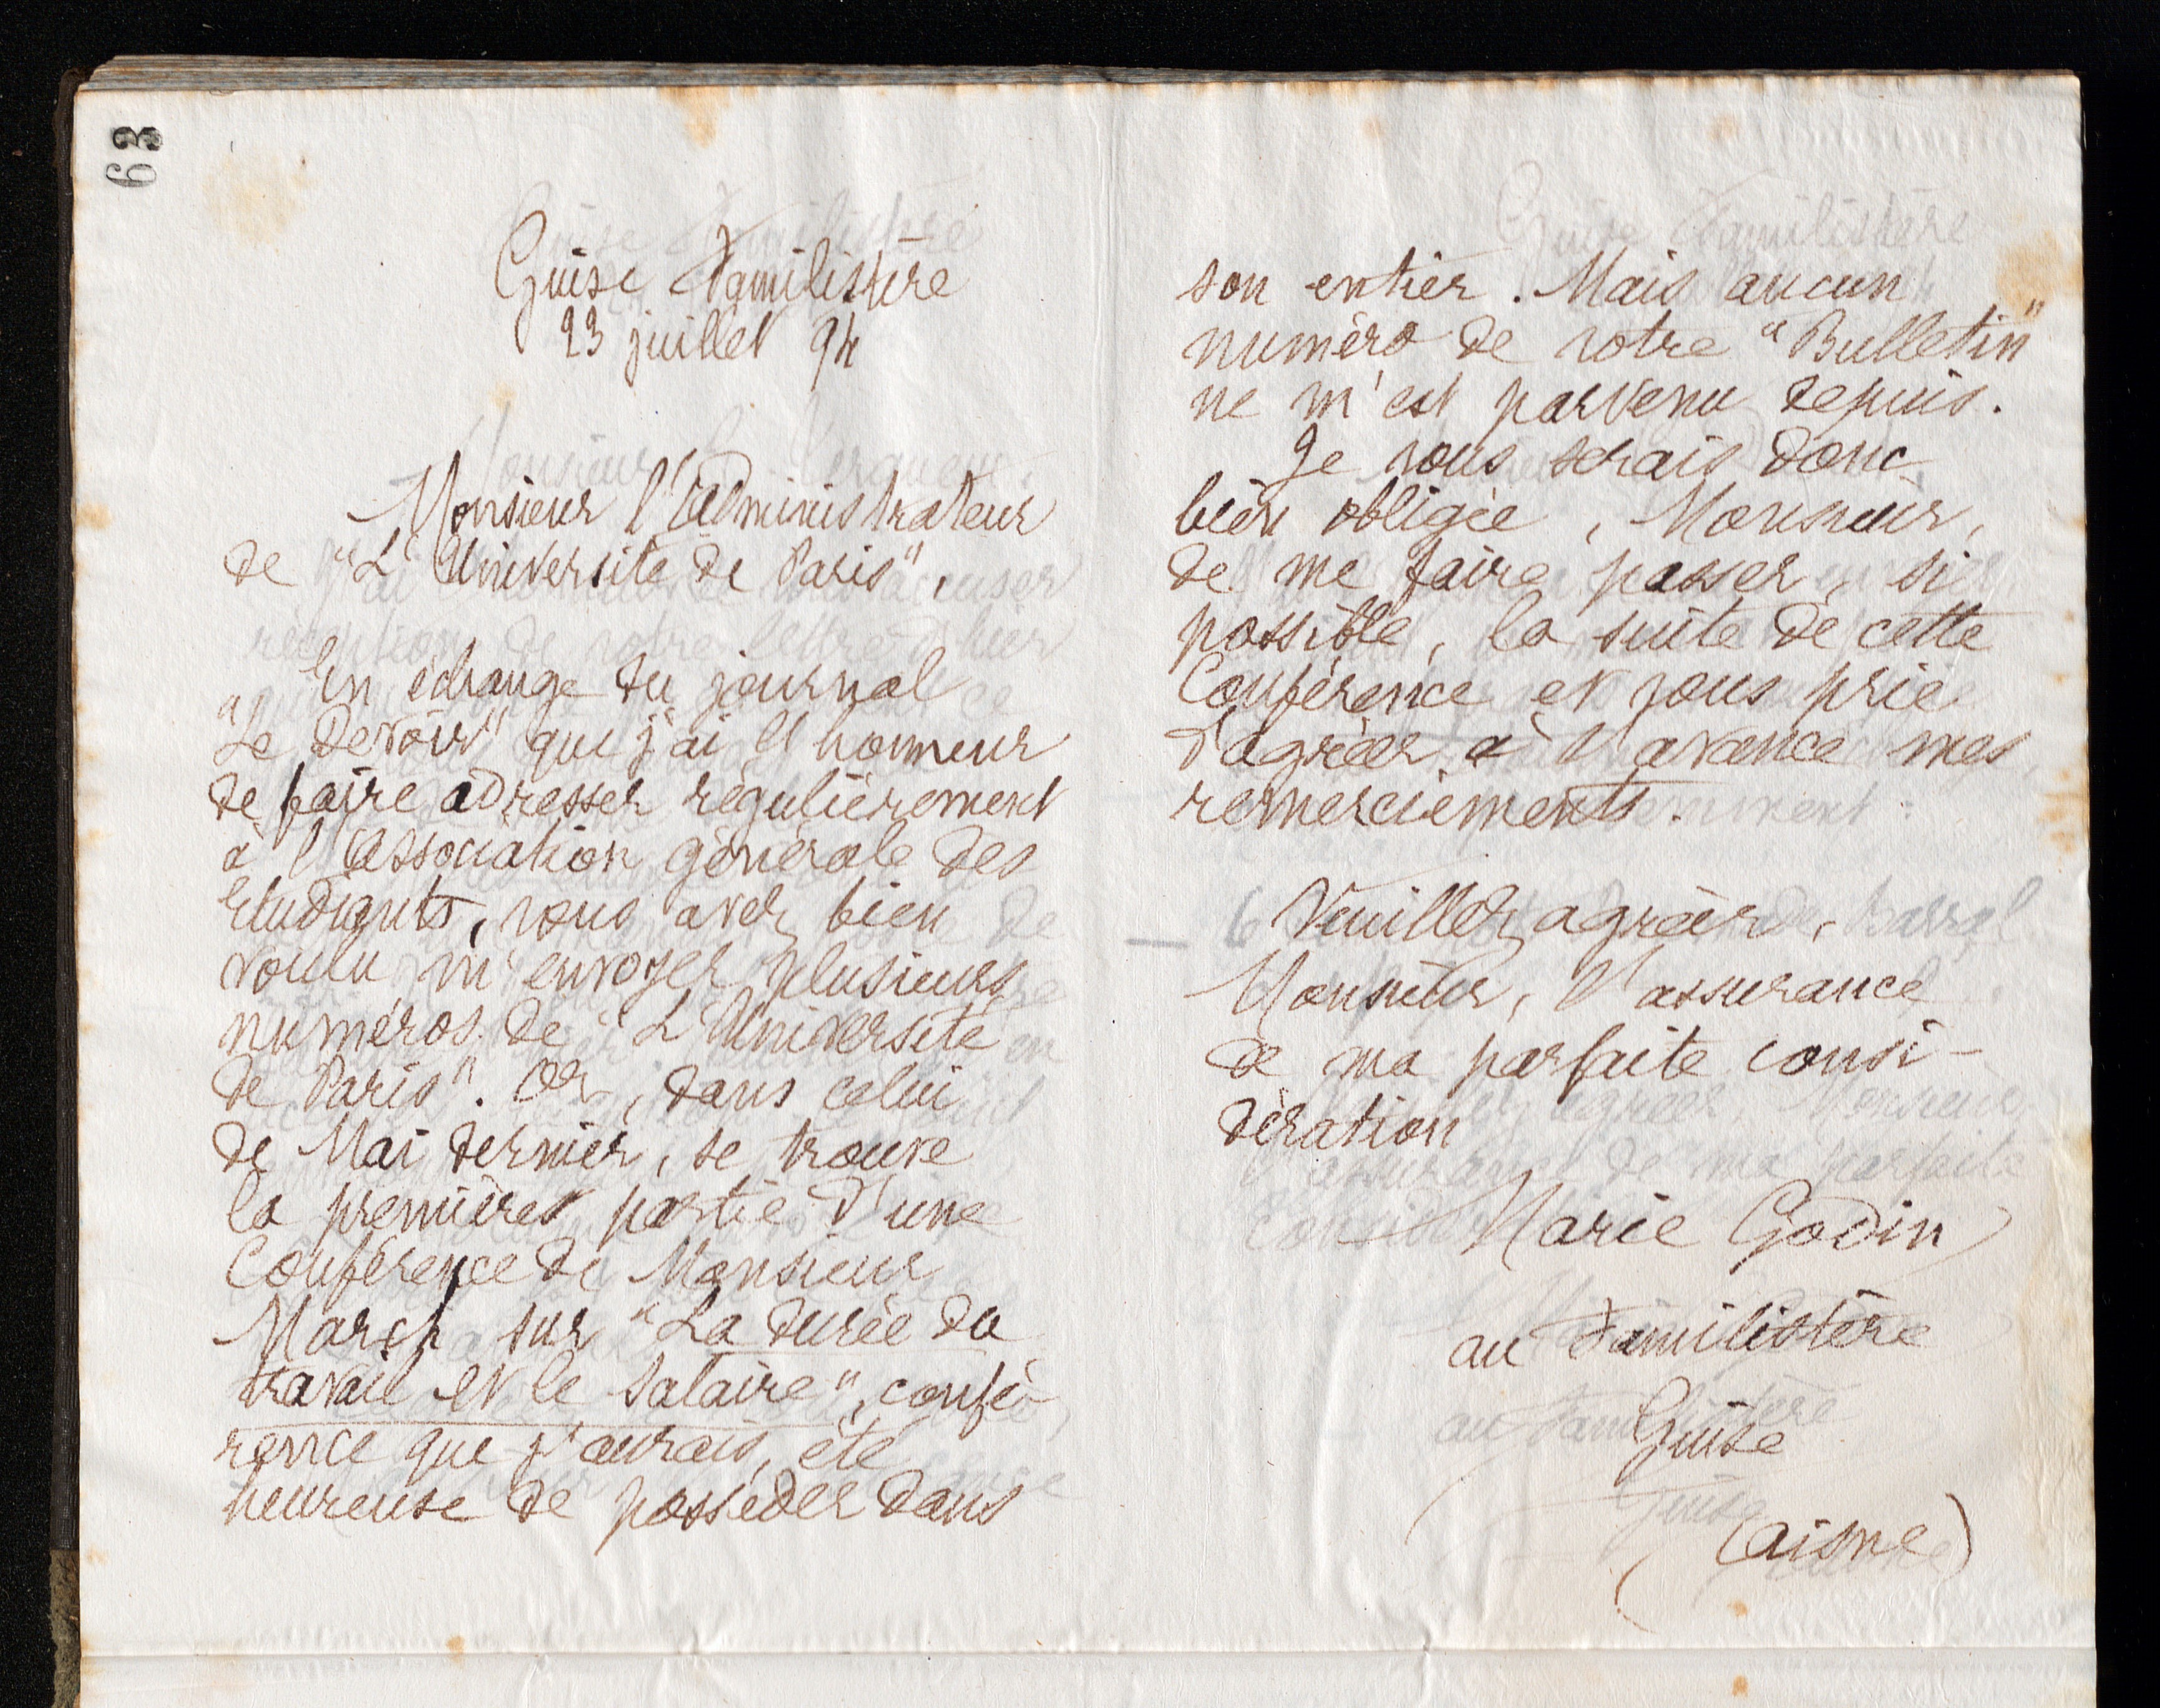 63
Guise Familistère
23 juillet 94
Monsieur l'Administrateur
de "L'Université de Paris",
En échange du journal
"Le Devoir" que j'ai l'honneur
de faire adresser régulièrement
à l'Association générale des
Etudiants, vous avez bien
voulu m'envoyer plusieurs
numéros de "L'Université
de Paris". Or, dans celui
de Mai dernier, se trouve
la première partie d'une
Conférence de Monsieur
March sur "La durée du
travail et le salaire", confé-
rence que j'aurais été
heureuse de posséder dans
son entier. Mais aucun
numéro de votre "Bulletin"
ne m'est parvenu depuis.
Je vous serais donc
bien obligée, Monsieur,
de me faire passer, si
possible, la suite de cette
Conférence et vous prie
d'agréer à l'avance mes
remerciements.
Veuillez agréer,
Monsieur, l'assurance
de ma parfaite consi-
dération
Marie Godin
au Familistère
Guise
(Aisne)